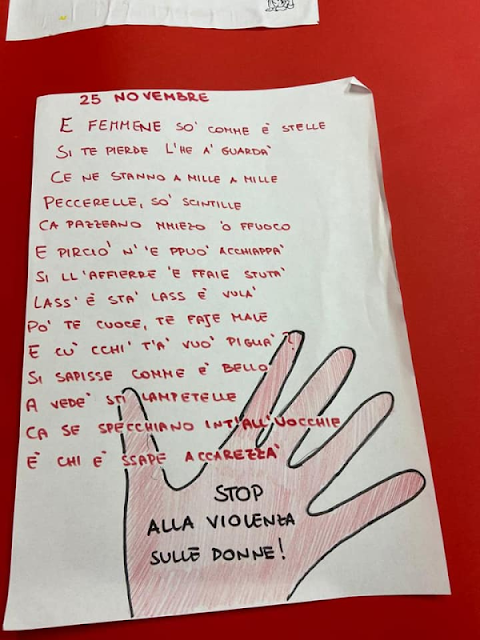 25 NOVEMBRE
E FEMMENE SO' COMME È STELLE
SI TE PIERDE L'HE A' GUARDÀ
CE NE STANNO A MILLE A MILLE
PECCERELLE, SO' SCINTILLE
CA PAZZEANO MMIEZO 'O FFUOCO
E PIRCIÒ N' 'E PPUO' ACCHIAPPA'
SI LL'AFFIERRE 'E FFAIE STUTA'
LASS' È STA' LASS È VULA'
PO' TE CUOCE, TE FAJE MALE
E CU' CCHI' T'A' VUO' PIGLIA'?
SI SAPISSE COMME È BELLO
A VEDE' STI LAMPETELLE
CA SE SPECCHIANO INT'ALL'UOCCHIE
E' CHI È SSAPE ACCAREZZÀ
STOP
ALLA VIOLENZA
SULLE DONNE!